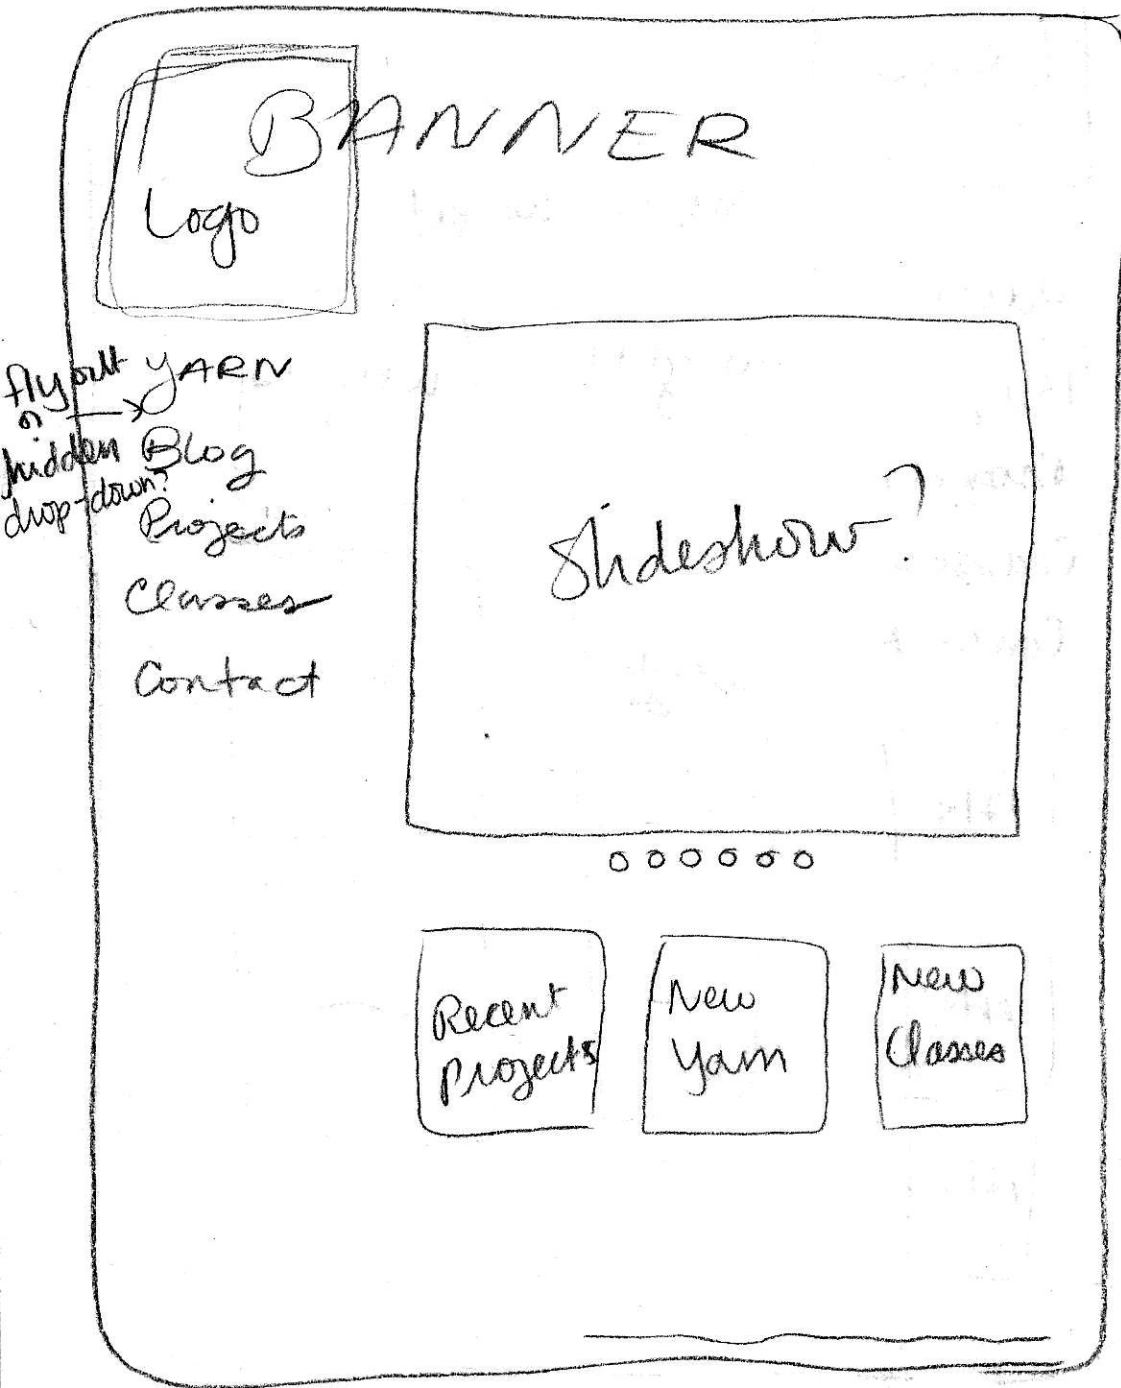 BANNER
Logo
fly out
or
hidden
drop-down?
YARN
Blog
Projects
Classes
Contact
Slideshow?
Recent
Projects
New
Yarn
New
Classes